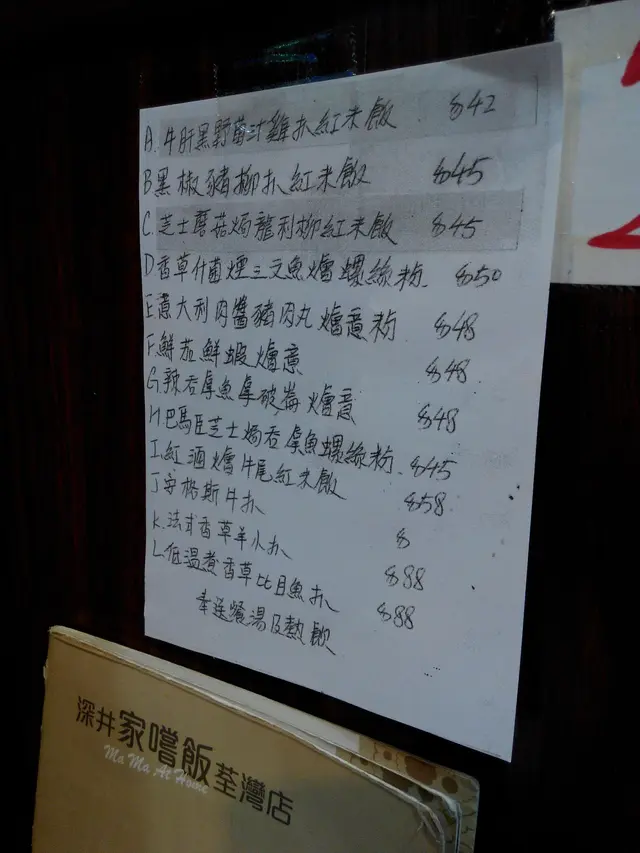 A. 牛肝黑野菌汁雞扒紅米飯 $42
B 黑椒豬柳扒紅米飯 $45
C. 芝士蘑菇焗龍利柳紅米飯 $45
D 香草什菌煙三文魚燴螺絲粉 $50
E 意大利肉醬豬肉丸燴意粉 $48
F. 鮮茄鮮蝦燴意 $48
G. 辣吞拿魚拿破崙燴意 $48
H. 巴馬臣芝士焗吞拿魚螺絲粉 $45
I. 紅酒燴牛尾紅米飯 $58
J 安格斯牛扒 $
K. 法式香草羊小扒 $88
L. 低溫煮香草比目魚扒 $88
奉送餐湯及熱飲
深井家嚐飯荃灣店
Ma Ma At Home